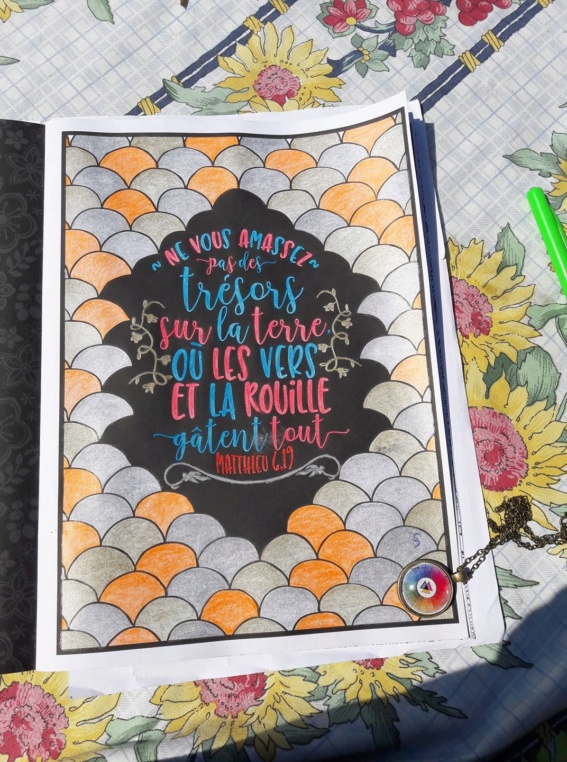 ~ NE VOUS AMASSEZ ~
pas des
trésors
sur la terre,
OÙ LES VERS
ET LA ROUILLE
gâtent tout
MATTHIEU 6,19
5